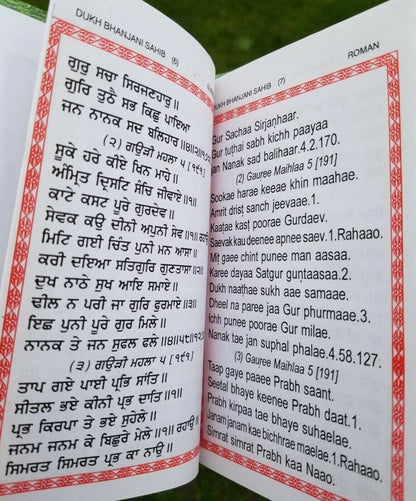 DUKH BHANJANI SAHIB (6)
ਗੁਰੁ ਸਚਾ ਸਿਰਜਣਹਾਰੁ ॥
ਗੁਰਿ ਤੁਠੈ ਸਭ ਕਿਛੁ ਪਾਇਆ
ਜਨ ਨਾਨਕ ਸਦ ਬਲਿਹਾਰ ॥੪॥੨॥੧੭੦
(੨) ਗਉੜੀ ਮਹਲਾ ੫ [੧੯੧]
ਸੂਕੇ ਹਰੇ ਕੀਏ ਖਿਨ ਮਾਹੇ ॥
ਅੰਮ੍ਰਿਤ ਦ੍ਰਿਸਟਿ ਸੰਚਿ ਜੀਵਾਏ ॥੧॥
ਕਾਟੇ ਕਸਟ ਪੂਰੇ ਗੁਰਦੇਵ ॥
ਸੇਵਕ ਕਉ ਦੀਨੀ ਅਪੁਨੀ ਸੇਵ ॥੧॥
ਮਿਟਿ ਗਈ ਚਿੰਤ ਪੁਨੀ ਮਨ ਆਸਾ ॥
ਕਰੀ ਦਇਆ ਸਤਿਗੁਰਿ ਗੁਣਤਾਸਾ ॥੨॥
ਦੁਖ ਨਾਠੇ ਸੁਖ ਆਇ ਸਮਾਏ ॥
ਢੀਲ ਨ ਪਰੀ ਜਾ ਗੁਰਿ ਫੁਰਮਾਏ ॥੩॥
ਇਛ ਪੁਨੀ ਪੂਰੇ ਗੁਰ ਮਿਲੇ ॥
ਨਾਨਕ ਤੇ ਜਨ ਸੁਫਲ ਫਲੇ ॥੪॥੫੮॥੧੨੭
(੩) ਗਉੜੀ ਮਹਲਾ ੫ [੧੯੧]
ਤਾਪ ਗਏ ਪਾਈ ਪ੍ਰਭਿ ਸਾਂਤਿ ॥
ਸੀਤਲ ਭਏ ਕੀਨੀ ਪ੍ਰਭ ਦਾਤਿ ॥੧॥
ਪ੍ਰਭ ਕਿਰਪਾ ਤੇ ਭਏ ਸੁਹੇਲੇ ॥
ਜਨਮ ਜਨਮ ਕੇ ਬਿਛੁਰੇ ਮੇਲੇ ॥੧॥ ਰਹਾਉ ॥
ਸਿਮਰਤ ਸਿਮਰਤ ਪ੍ਰਭ ਕਾ ਨਾਉ ॥
DUKH BHANJANI SAHIB (7) ROMAN
Gur Sachaa Sirjaṇhaar.
Gur tuṭhai sabh kichh paayaa
jan Nanak sad balihaar.4.2.170.
(2) Gauree Maihlaa 5 [191]
Sookae haraе keeae khin maahae.
Amrit drist sanch jeevaae.1.
Kaatae kasṭ poorae Gurdaev.
Saevak kau deenee apnee saev.1.Rahaao.
Miṭ gaee chint punee man aasaa.
Karee dayaa Satgur guṇtaasaa.2.
Dukh naathae sukh aae samaae.
Dheel na paree jaa Gur phurmaae.3.
Ichh punee poorae Gur milae.
Nanak tae jan suphal phalae.4.58.127.
(3) Gauree Maihlaa 5 [191]
Taap gaye paaee Prabh saant.
Seetal bhaye keenee Prabh daat.1.
Prabh kirpaa tae bhaye suhaelae.
Janam janam kae bichhrae maelae.1.Rahaao.
Simrat simrat Prabh kaa Naao.